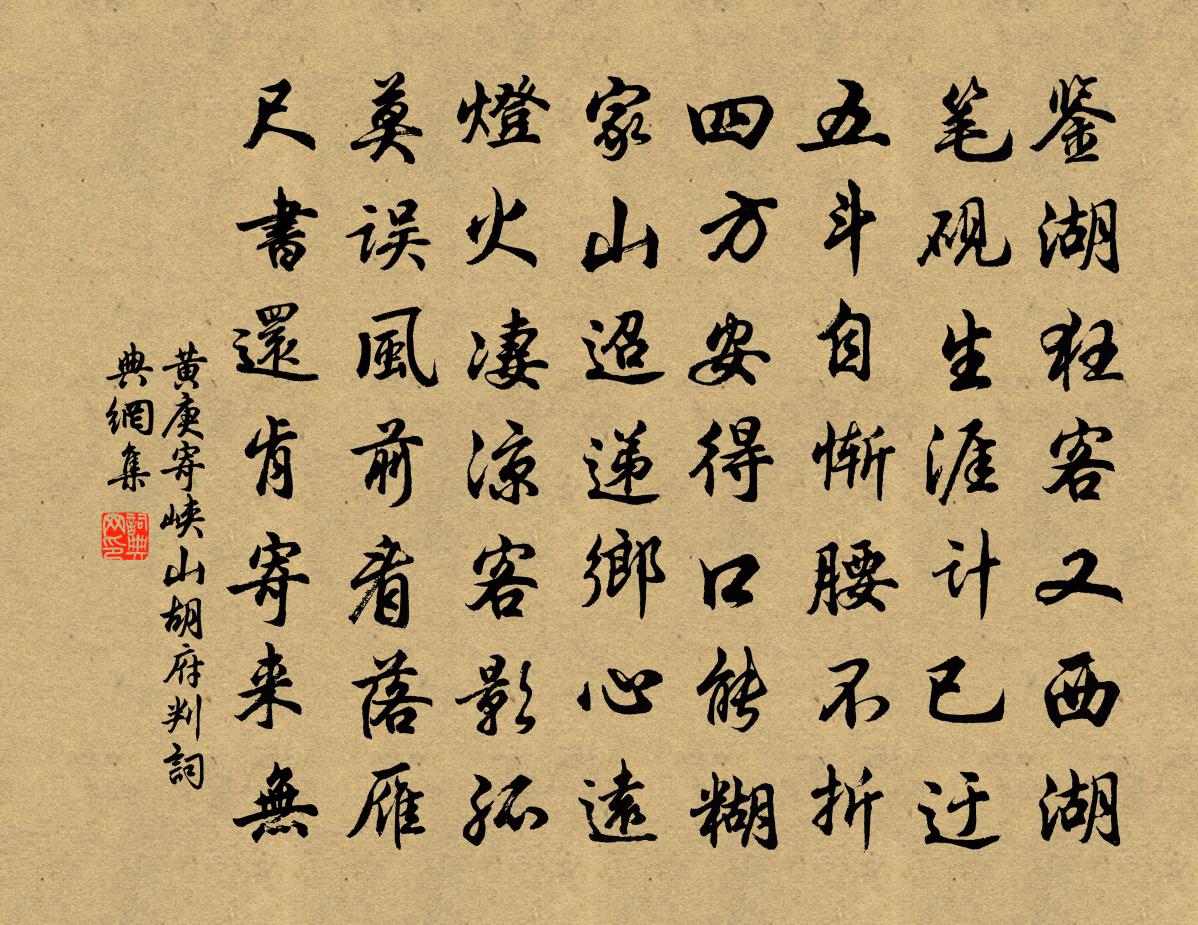 鉴湖狂客又西湖
笔砚生涯计已迂
五斗自惭腰不折
四方安得口能糊
家山迢递鄉心遠
燈火凄凉客影孤
莫误風前看落雁
尺書還肯寄来無
黄庚寄峡山胡府判詞
典網集
詞典
网印